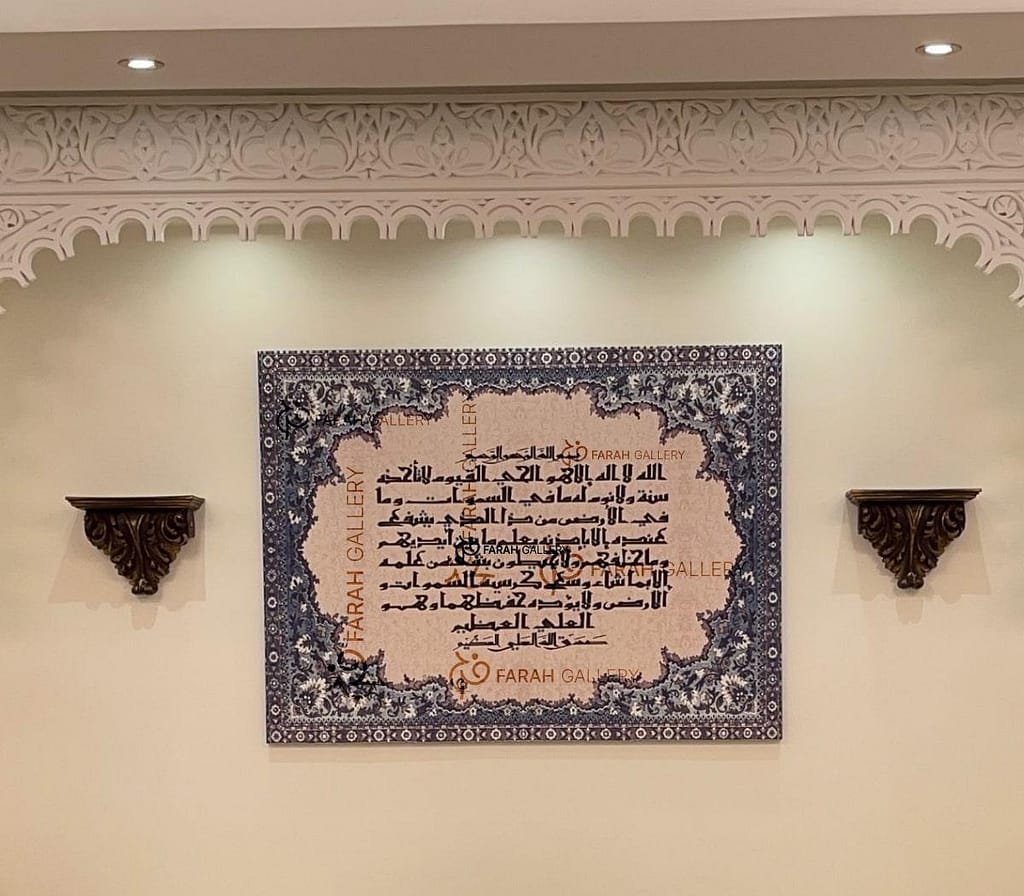 FARAH GALLERY
FARAH GALLERY
بسم الله الرحمن الرحيم
FARAH GALLERY
الله لا إله إلا هو الحي القيوم لا تأخذه
سنة ولا نوم له ما في السموات وما
في الأرض من ذا الذي يشفع
عنده إلا بإذنه يعلم ما بين أيديهم
FARAH GALLERY
وما خلفهم ولا يحيطون بشيء من علمه
FARAH GALLERY
إلا بما شاء وسع كرسيه السموات و
الأرض ولا يؤده حفظهما وهو
العلي العظيم
صدق الله العلي العظيم
FARAH GALLERY
FARAH GALLERY